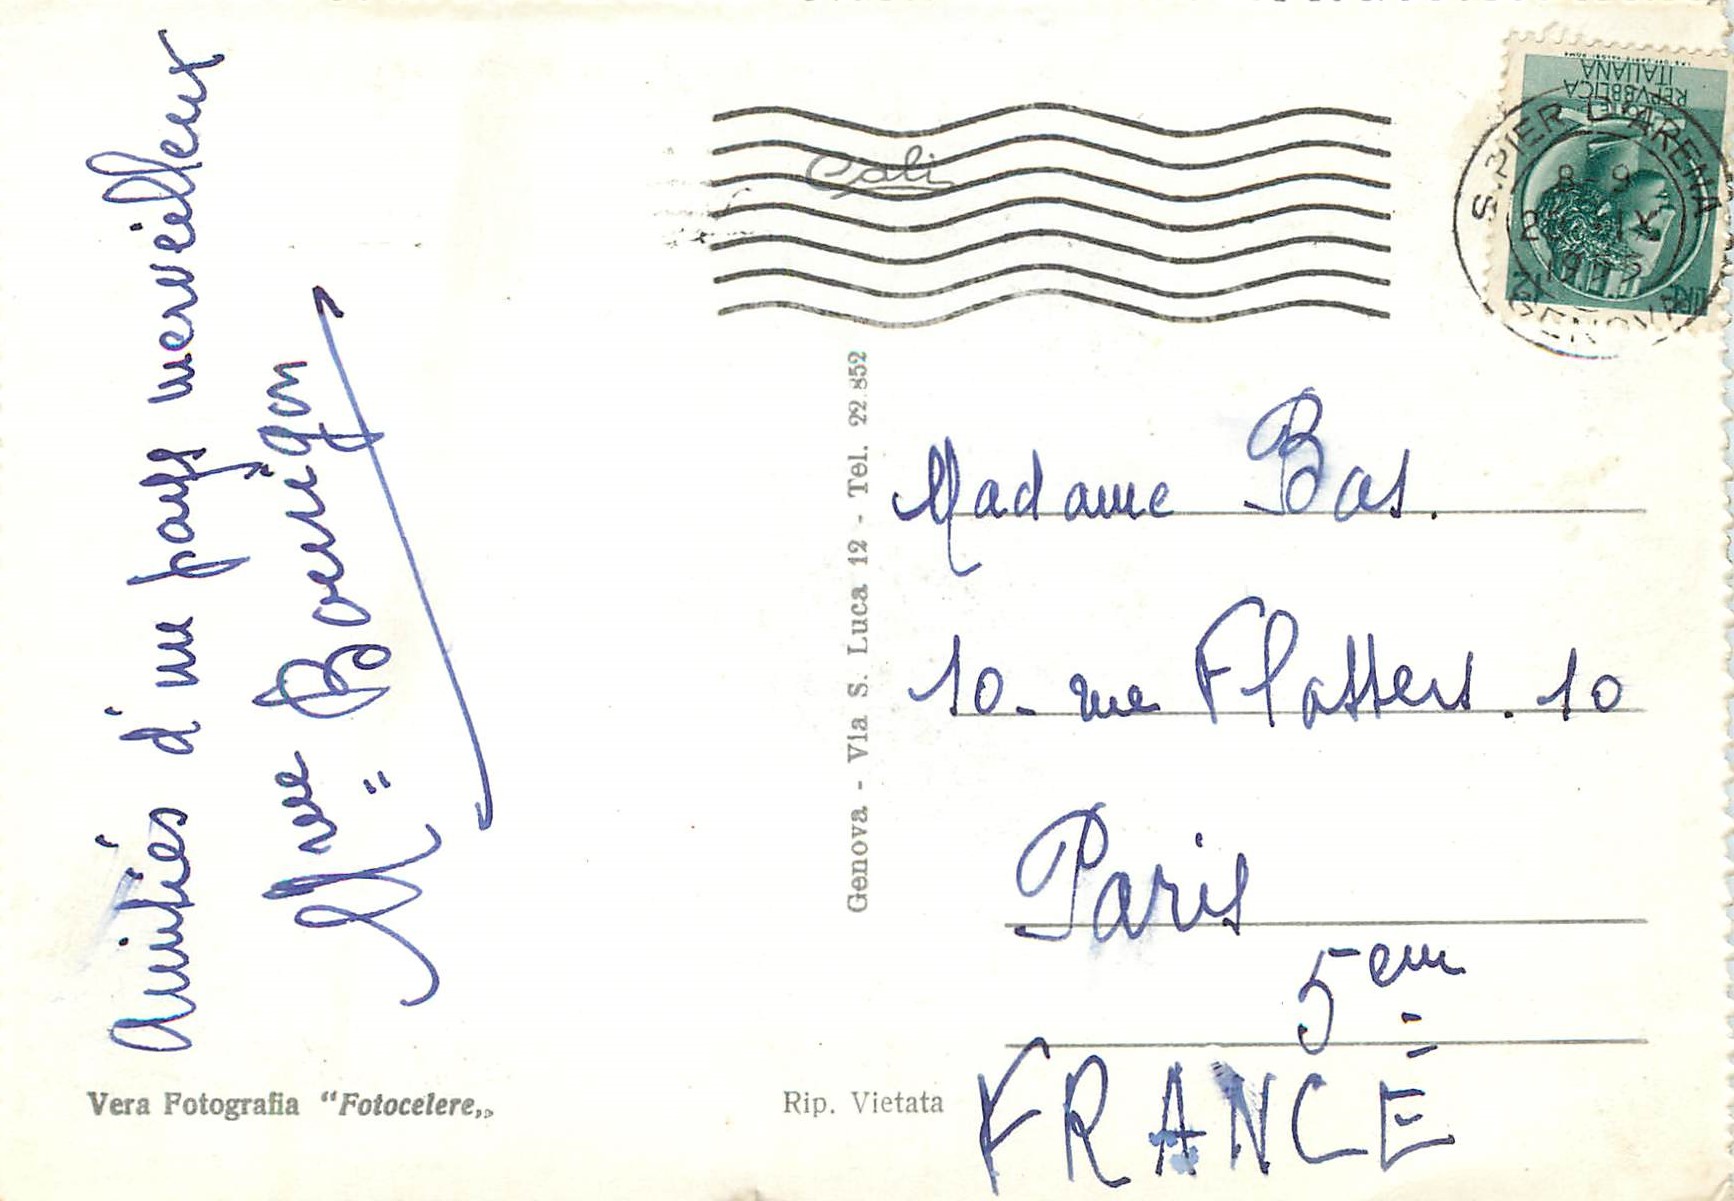 Amitiés d'un pays merveilleux
Mme Bourigan
Vera Fotografia "Fotocelere„
Genova - Via S. Luca 12 - Tel. 22.852
Rip. Vietata
REPVBBLICA
ITALIANA
S. PIER D'ARENA
8 9
IX
GENOVA
Madame Bas.
10 - rue Flatters. 10
Paris
5em
FRANCE